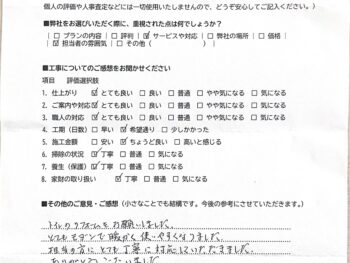 個人の評価や人事査定などには一切使用いたしませんので、どうぞ安心してご記入ください。）
■弊社をお選びいただく際に、重視された点は何でしょうか？
｜□プランの内容｜□評判｜☑サービスや対応｜□弊社の場所｜□価格｜
｜☑担当者の雰囲気｜□その他（　　　　　　）｜
■工事についてのご感想をお聞かせください
項目　評価選択数
1．仕上がり　☑とても良い　□良い　□普通　□やや気になる　□気になる
2．ご案内や対応　☑とても良い　□良い　□普通　□やや気になる　□気になる
3．職人の対応　☑とても良い　□良い　□普通　□やや気になる　□気になる
4．工期（日数）　□早い　☑希望通り　□少しかかった
5．施工金額　□安い　☑ちょうど良い　□高いと感じる
6．掃除の状況　☑丁寧　□普通　□気になる
7．養生（保護）　☑丁寧　□普通　□気になる
8．家財の取り扱い　☑丁寧　□普通　□気になる
■その他のご意見・ご感想（小さなことでも結構です。今後の参考にさせていただきます。）
トイレのリフォームをお願いしました。
とてもモダンで暖かく使いやすくなりました。
担当の方にとても丁寧に対応していただきました。
ありがとうございました。